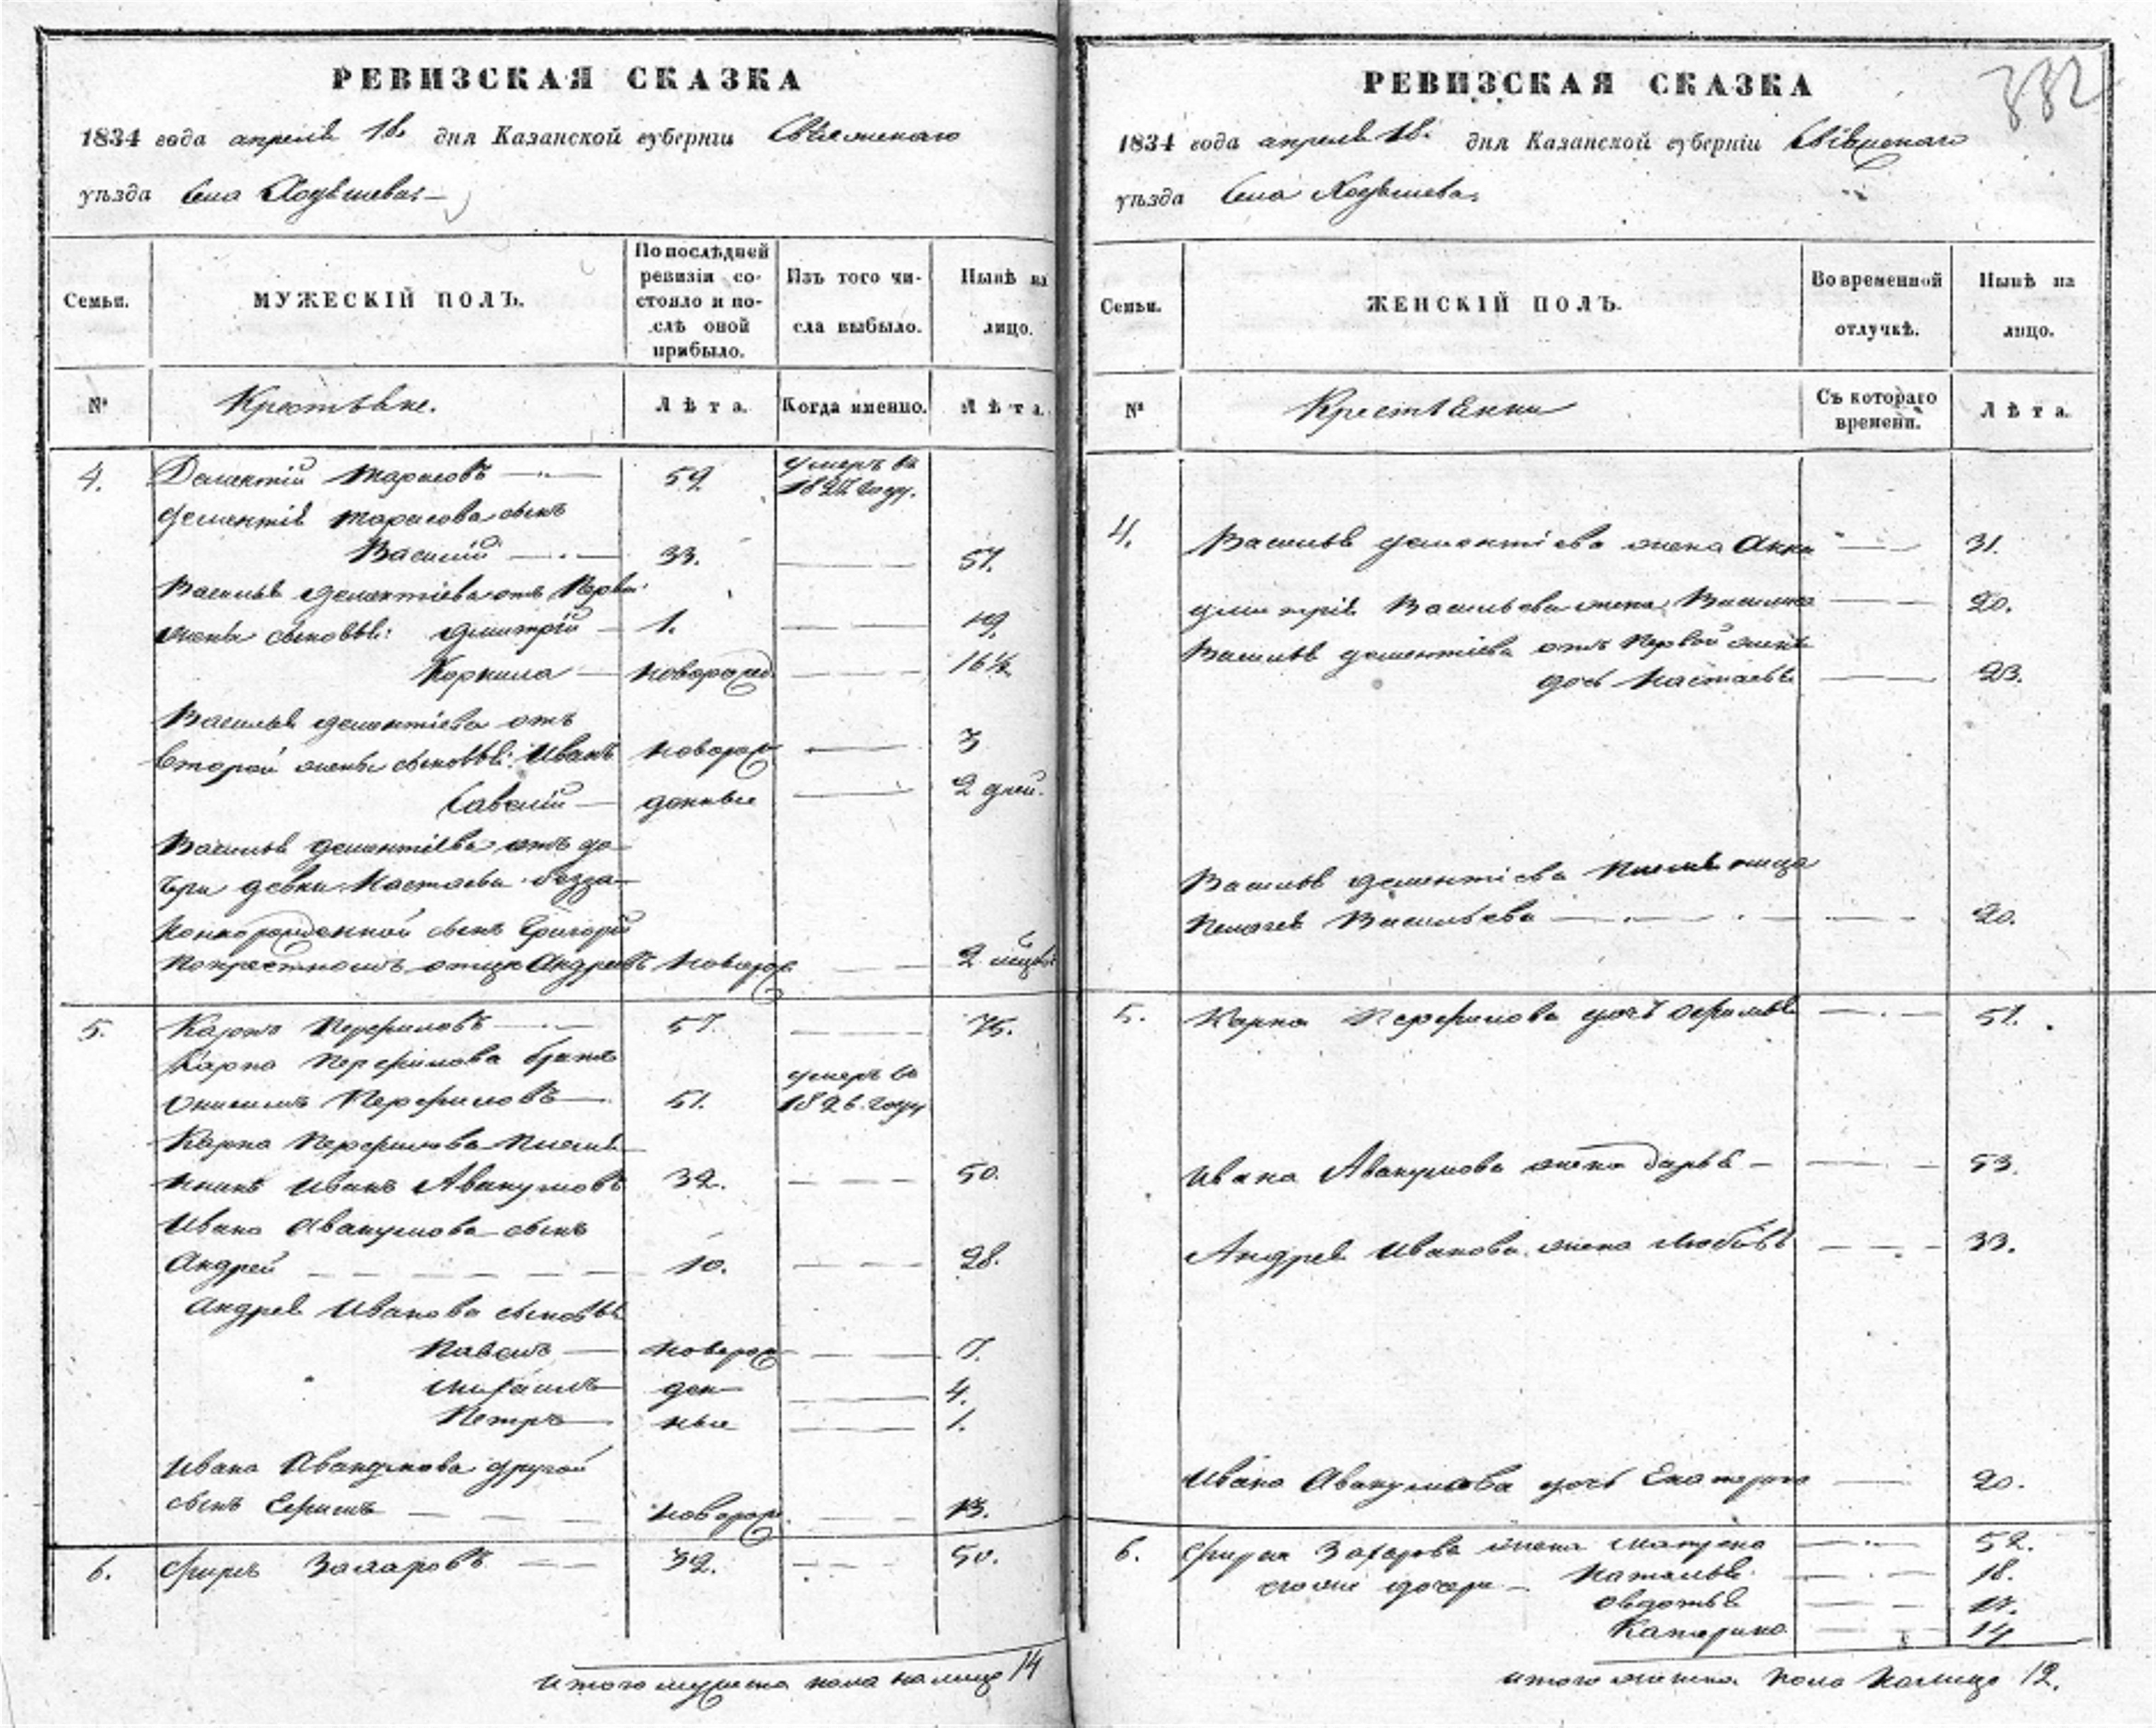 РЕВИЗСКАЯ СКАЗКА
1834 года апреля 18. дня Казанской губерніи Свіяжскаго
уѣзда Села
Семьи.
МУЖЕСКІЙ ПОЛЪ.
По послѣдней
ревизіи со-
стояло и по-
слѣ оной
прибыло.
Изъ того чи-
сла выбыло.
Нынѣ на
лицо.
№
Крестьяне.
Лѣта.
Когда именно.
Лѣта.
4. Дементій Тарасовъ 59 умеръ въ
году.
Дементія Тарасова сынъ
Василій 33. 51.
Василья Дементіева отъ Первой
жены сыновья: Дмитрій 1. 19.
Корнила новорожд. 16½
Василья Дементіева отъ
второй жены сыновья: Иванъ новорож 3
Савелій денные 2 дней.
Василья Дементіева отъ до
чри девки Настасьи безза
коннорожденной сынъ Григорій
покрестному отцу Андреевъ новорож 2
5. Карпъ Перфиловъ 57. 75.
Карпа Перфилова братъ
умеръ въ
Онисимъ Перфиловъ 51. 1826. году
Карпа Перфилова Племя
нникъ Иванъ Авакумовъ 32. 50.
Ивана Авакумова сынъ
Андрей 10. 28.
Андрея Иванова сыновья
Павелъ новорож 7.
Михаилъ ден 4.
Петръ ные 1.
Ивана Авакумова другой
сынъ Ефимъ новорож. 13.
6. Фирсъ Захаровъ 32. 50.
Итого мужеска пола налицо 14
332
РЕВИЗСКАЯ СКАЗКА
1834 года апреля 18. дня Казанской губерніи Свіяжскаго
уѣзда Села
Семьи.
ЖЕНСКІЙ ПОЛЪ.
Во временной
отлучкѣ.
Нынѣ на
лицо.
№
Крестьянки
Съ котораго
времени.
Лѣта.
4. Василья Дементіева жена Анна 31.
Дмитрія Васильева жена 20.
Василья Дементіева отъ Первой жены
дочь Настасья 23.
Василья Дементіева Племянница
Пелагея Васильева 20.
5. Карпа Перфилова дочь Афимья 51.
Ивана Авакумова жена Дарья 53.
Андрея Иванова жена Любовь 33.
Ивана Авакумова дочь Екатерина 20.
6. Фирса Захарова жена Матрена 52.
дочери Наталья 18.
Овдотья 17.
Катерина 14
итого женска пола налицо 12.